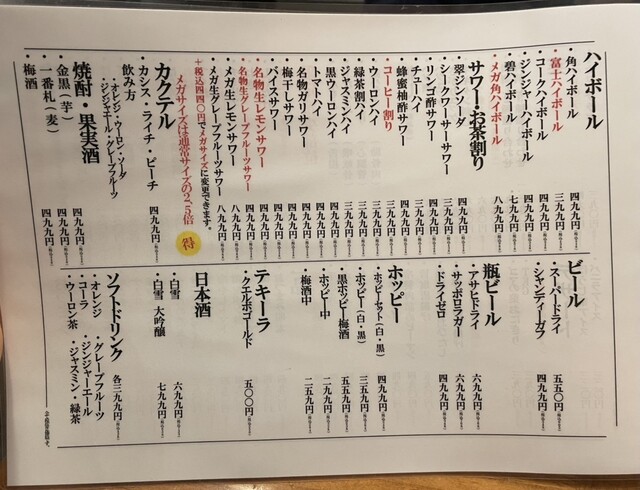 ハイボール
・角ハイボール 四九九円
・富士ハイボール 三九九円
・コークハイボール 四九九円
・ジンジャーハイボール 四九九円
・碧ハイボール 七九九円
・メガ角ハイボール 八九九円
サワー・お茶割り
・翠ジンソーダ 四九九円
・シークワーサーサワー 三九九円
・リンゴ酢サワー 三九九円
・蜂蜜柚酢サワー 三九九円
・チューハイ 三九九円
・コーヒー割り 三九九円
・ウーロンハイ 三九九円
・緑茶割ハイ 三九九円
・ジャスミンハイ 三九九円
・黒ウーロンハイ 四九九円
・トマトハイ 四九九円
・名物ガリサワー 四九九円
・梅干しサワー 四九九円
・バイスサワー 四九九円
・名物生レモンサワー 四九九円
・名物生グレープフルーツサワー 四九九円
・メガ生レモンサワー 八九九円
・メガ生グレープフルーツサワー 八九九円
+税込四四〇円でメガサイズに変更できます。
メガサイズは通常サイズの2.5倍 得
カクテル
・カシス・ライチ・ピーチ 四九九円
飲み方
・オレンジ・ウーロン・ソーダ
・ジンジャエール・グレープフルーツ
焼酎・果実酒
・金黒(芋) 四九九円
・一番札(麦) 四九九円
・梅酒 四九九円
ビール
・スーパードライ 五五〇円
・シャンディーガフ 四九九円
瓶ビール
・アサヒドライ 六九九円
・サッポロラガー 六九九円
・ドライゼロ 四九九円
ホッピー
・ホッピーセット(白・黒) 四九九円
・ホッピー(白・黒) 三五九円
・黒ホッピー梅酒 五五九円
・ホッピー中 二九九円
・梅酒中 二五九円
テキーラ
・クエルボゴールド 五〇〇円
日本酒
・白雪 六九九円
・白雪 大吟醸 七九九円
ソフトドリンク 各三九九円
・オレンジ ・グレープフルーツ
・コーラ ・ジンジャーエール
・ウーロン茶 ・ジャスミン・緑茶